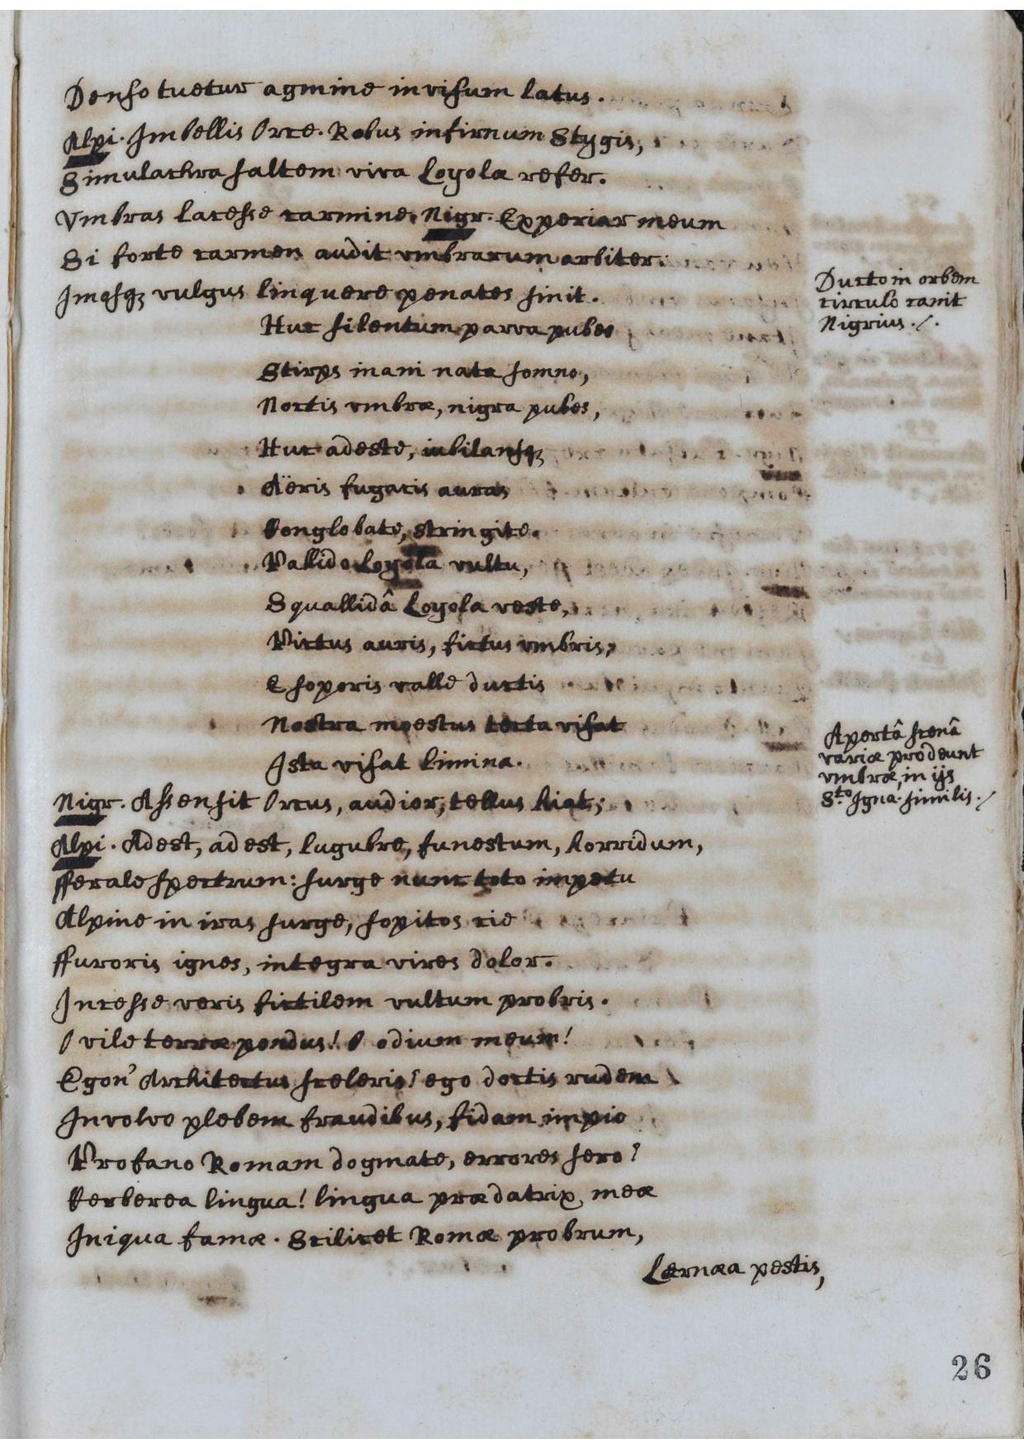 Denso tuetur agmine invisum latus.
Alpi. Imbellis Orce. Robus infirnum Stygis,
Simulachra saltem viva Loyolæ refer.
Vmbras lacesse carmine. Nigr. Experiar meum
Si forte carmen audit vmbrarum arbiter.
Imasq; vulgus linquere penates sinit.
Ducto in orbem
circulo canit
Nigrius ./.
Huc silentum parva pubes
Stirps inani nata somno,
Noctis vmbræ, nigra pubes,
Huc adeste, iubilansq;
Aëris fugacis auras
Conglobate, stringite.
Pallido Loyola vultu,
Squallidâ Loyola veste,
Pictus auris, fictus vmbris,
E soporis valle ductis
Nostra moestus tecta visat
Ista visat limina.
Apertâ scenâ
variæ prodeunt
vmbræ, in ijs
Sto Igna. similis./
Nigr. Assensit Orcus, audior, tellus hiat;
Alpi. Adest, adest, lugubre, funestum, horridum,
fferale spectrum: surge nunc toto impetu
Alpine in iras surge, sopitos cie
ffuroris ignes, integra vires dolor.
Incesse veris fictilem vultum probris.
O vile terræ pondus! O odium meum!
Egon' Architectus sceleris? ego doctis rudem
Involvo plebem fraudibus, fidam impio
Profano Romam dogmate, errores sero?
Cerberea lingua! lingua prædatrix meæ
Iniqua famæ. Scilicet Romæ probrum,
Lærnæa pestis,
26